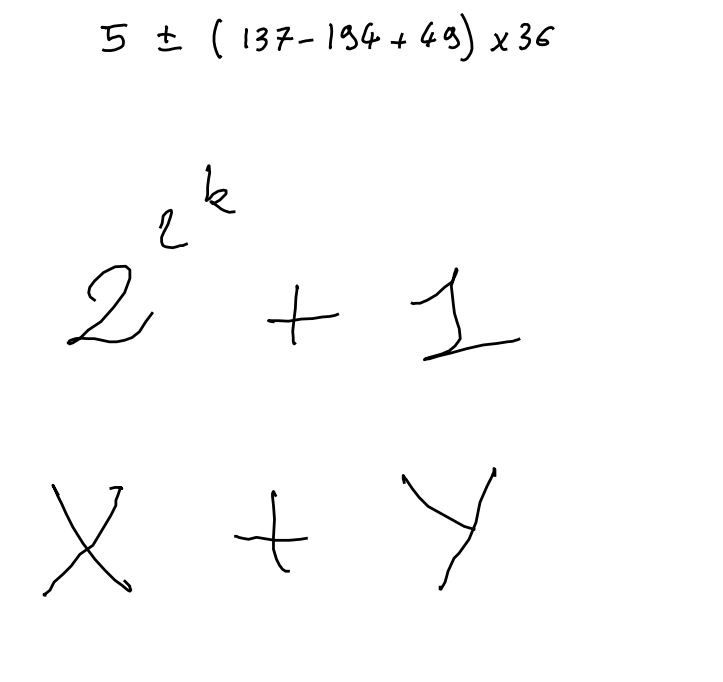 5 ± (137-194+49)×36
2^{2^k} + 1
X + Y